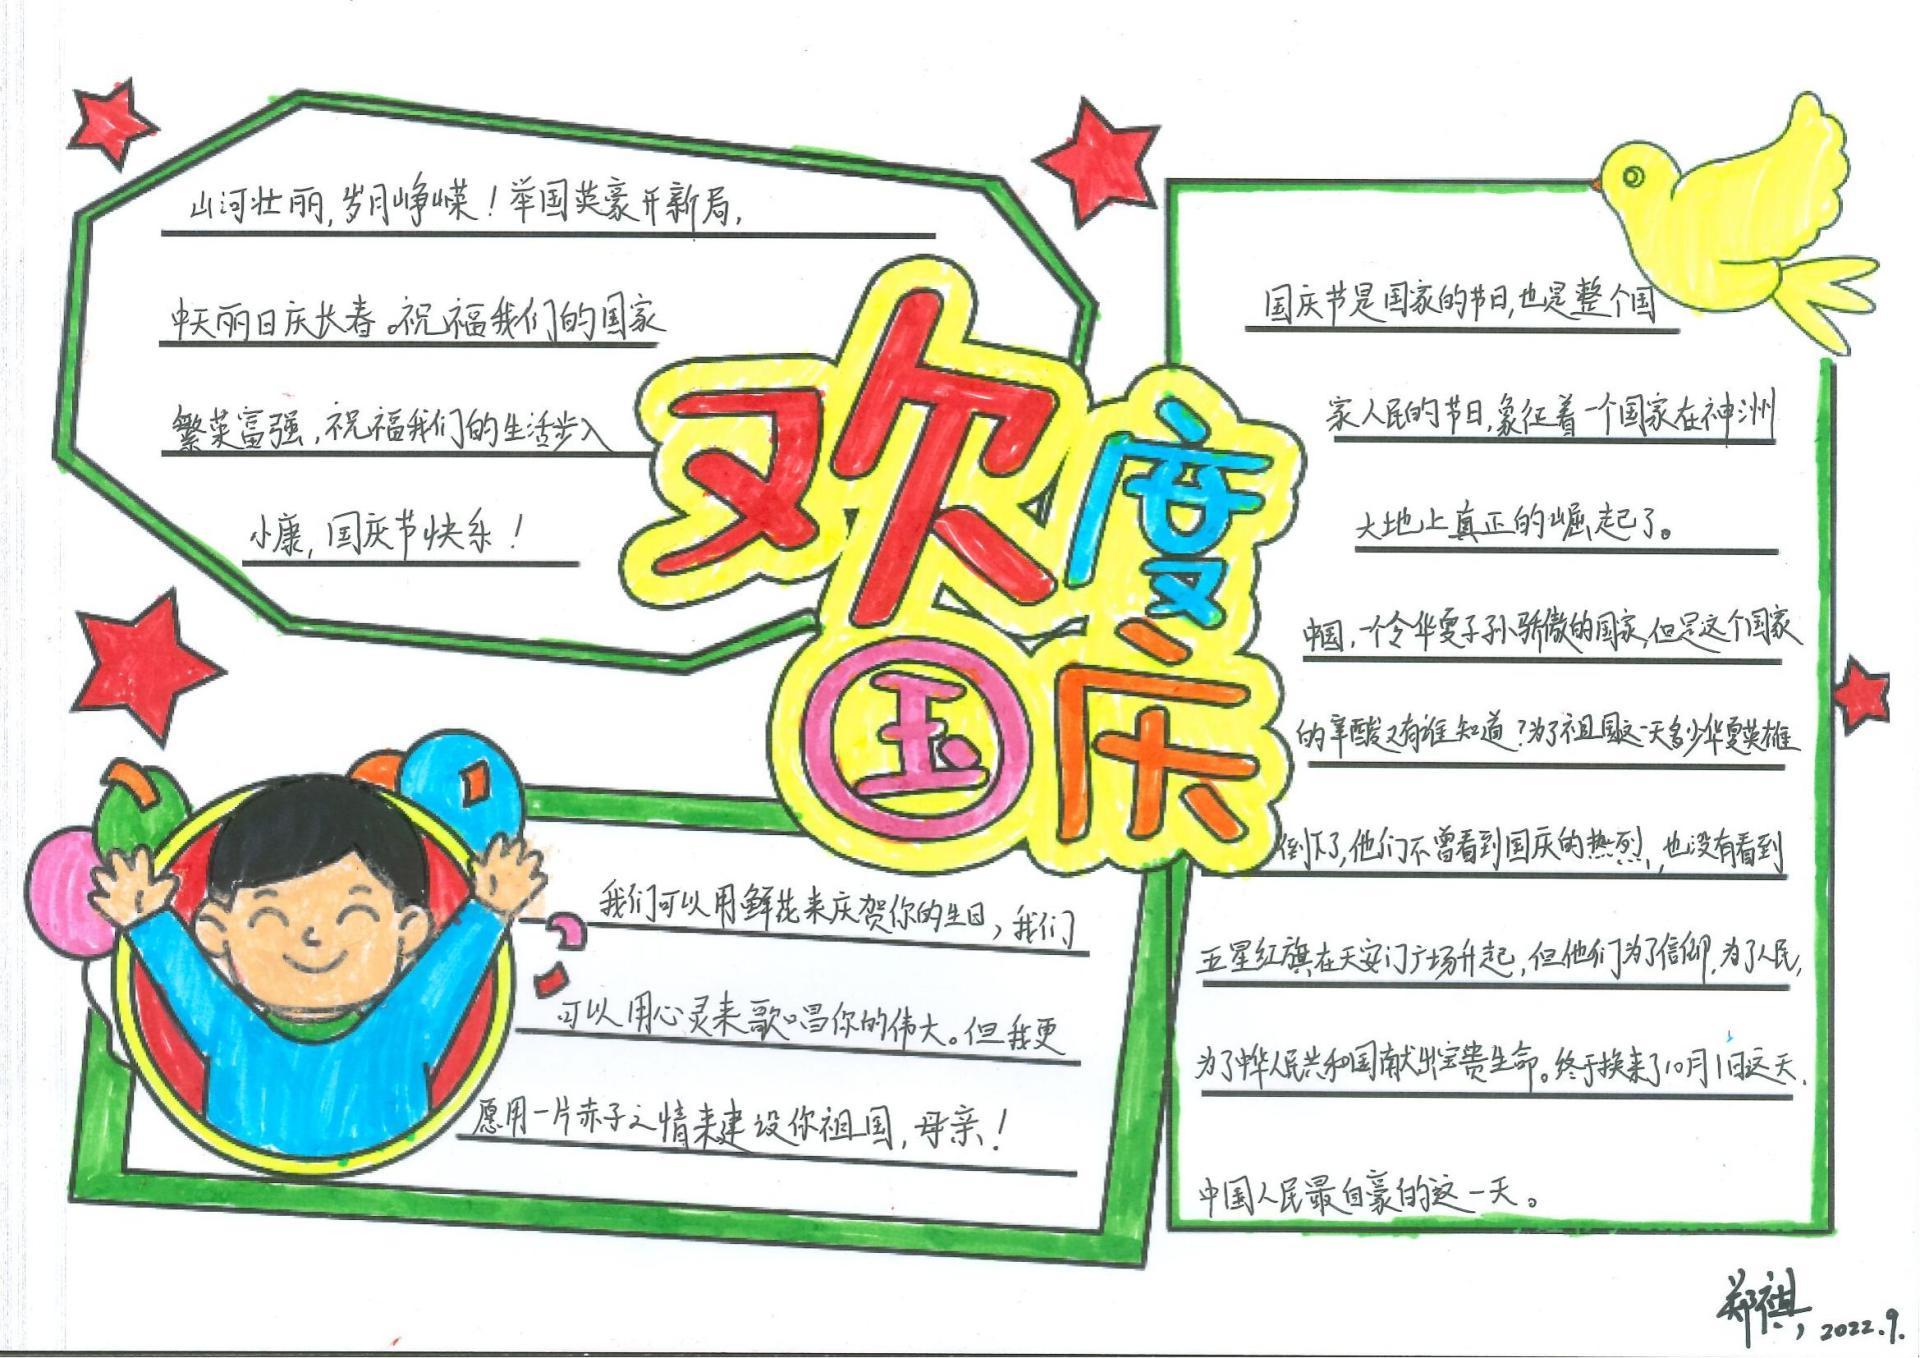 山河壮丽,岁月峥嵘!举国英豪开新局,
中天丽日庆长春。祝福我们的国家
繁荣富强,祝福我们的生活步入
小康,国庆节快乐!
欢度
国庆
我们可以用鲜花来庆贺你的生日,我们
可以用心灵来歌唱你的伟大。但我更
愿用一片赤子之情来建设你祖国,母亲!
国庆节是国家的节日,也是整个国
家人民的节日,象征着一个国家在神洲
大地上真正的崛起了。
中国,一个令华夏子孙骄傲的国家,但是这个国家
的辛酸又有谁知道?为了祖国这一天多少华夏英雄
倒下了,他们不曾看到国庆的热烈,也没有看到
五星红旗在天安门广场升起,但他们为了信仰,为了人民,
为了中华人民共和国献出宝贵生命。终于换来了10月1日这天,
中国人民最自豪的这一天。
郑祺,2022.9.